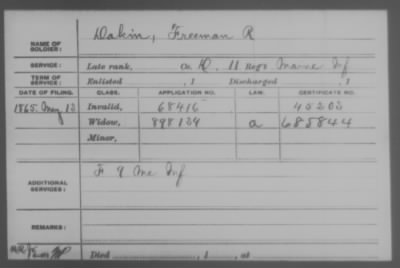 NAME OF SOLDIER: Dakin, Freeman R
SERVICE: Late rank, Co. D. 11 Reg't Maine Inf
TERM OF SERVICE: Enlisted , 1 Discharged , 1
DATE OF FILING. CLASS. APPLICATION NO. LAW. CERTIFICATE NO.
1865. May 12 Invalid, 68416 40203
Widow, 898139 a 685844
Minor,
ADDITIONAL SERVICES: F 9 Me Inf
REMARKS:
Died , 1 , at